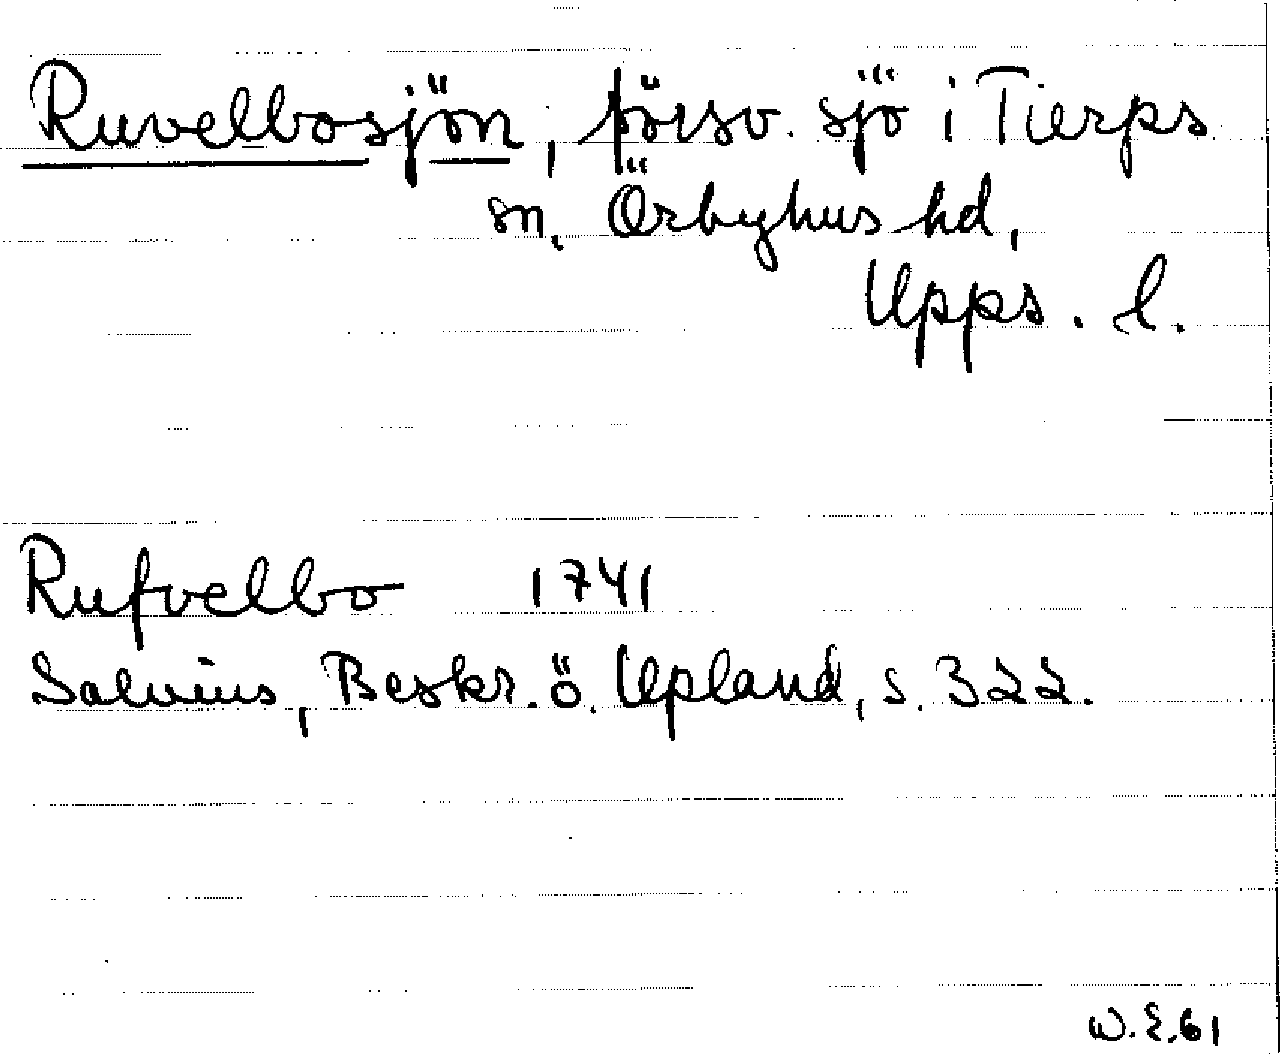 Ruvelbosjön, försv. sjö i Tierps
sn, Örbyhus hd,
Upps. l.
Rufvelbo 1741
Salvius, Beskr. ö. Upland, s. 322.
W. E. 61